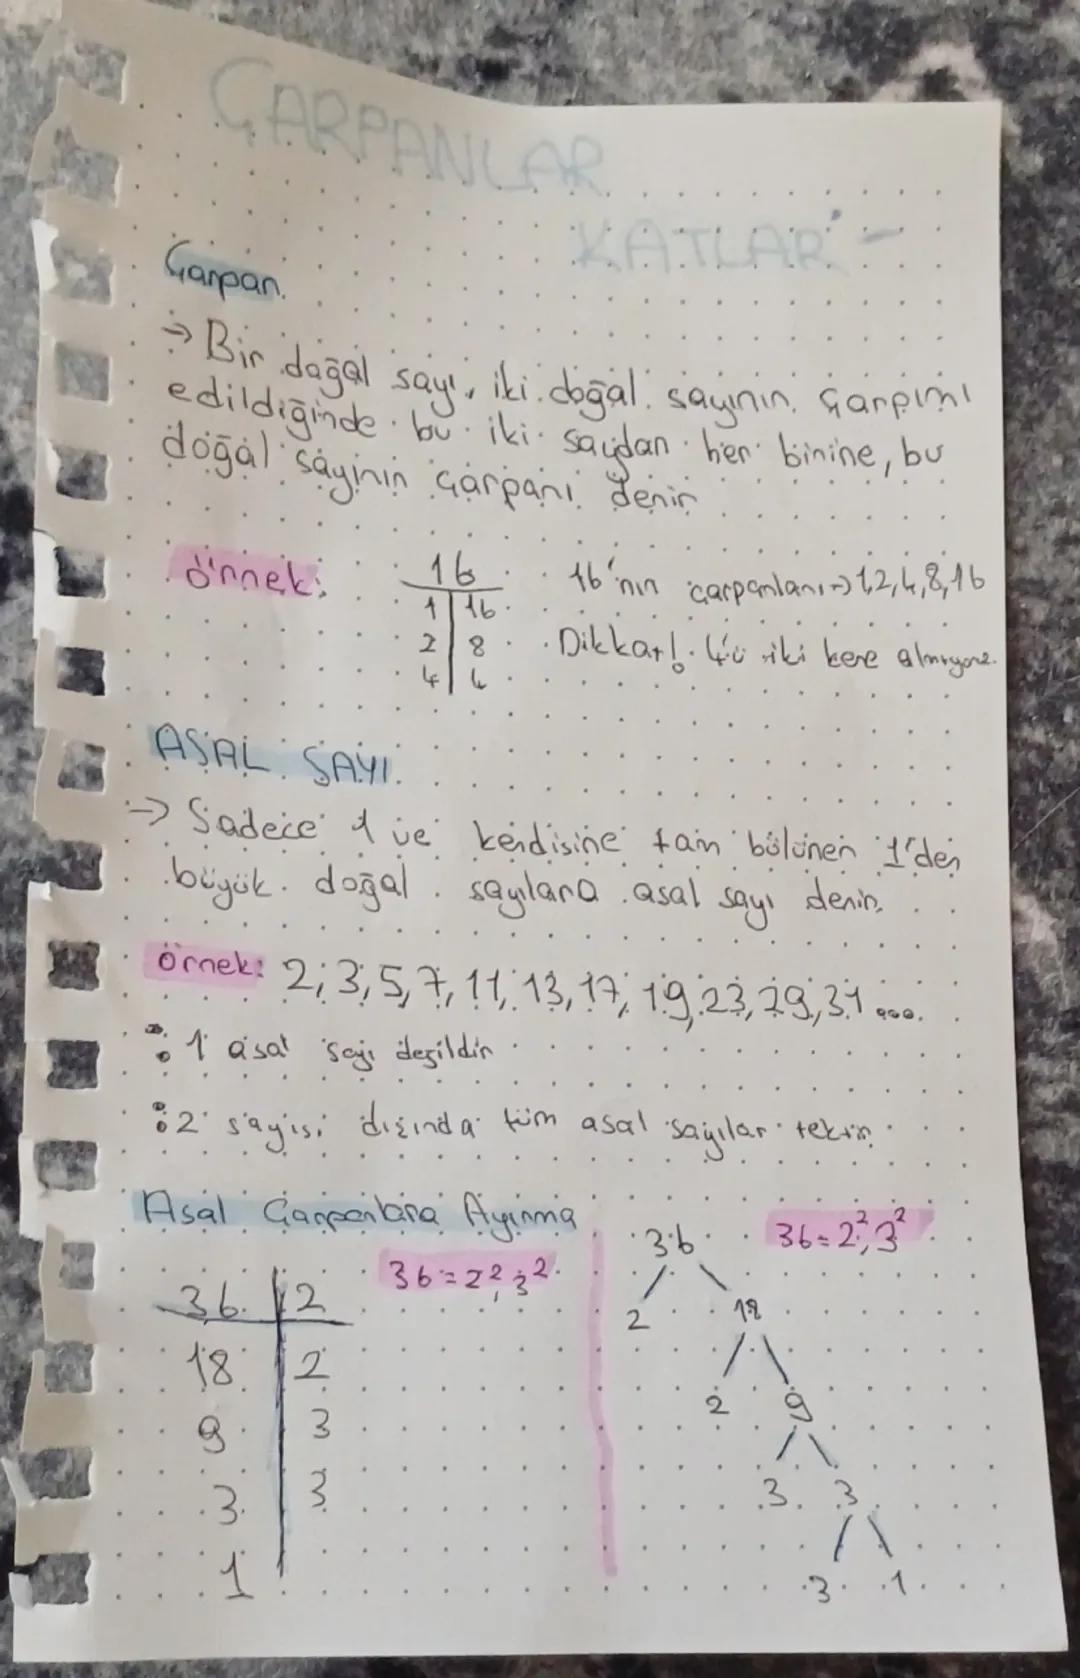 ÇARPANLAR
KATLAR
Çarpan
→ Bir doğal sayı, iki doğal sayının çarpımı
edildiğinde bu iki sayıdan her birine, bu
doğal sayının çarpanı denir
örnek:
16
1 | 16
2 | 8
4 | 4
16'nın çarpanları→ 1,2,4,8,16
Dikkat! 4'ü iki kere almıyoruz.
ASAL SAYI
→ Sadece 1 ve kendisine tam bölünen 1'den
büyük doğal sayılara asal sayı denir.
örnek: 2, 3, 5, 7, 11, 13, 17, 19, 23, 29, 31 ...
: 1 asal sayı değildir
: 2 sayısı dışında tüm asal sayılar tektir
Asal Çarpanlara Ayırma
36 = 2², 3²
36 | 2
18 | 2
9 | 3
3 | 3
1
36 = 2², 3²
36
2 18
2 9
3 3
3 1